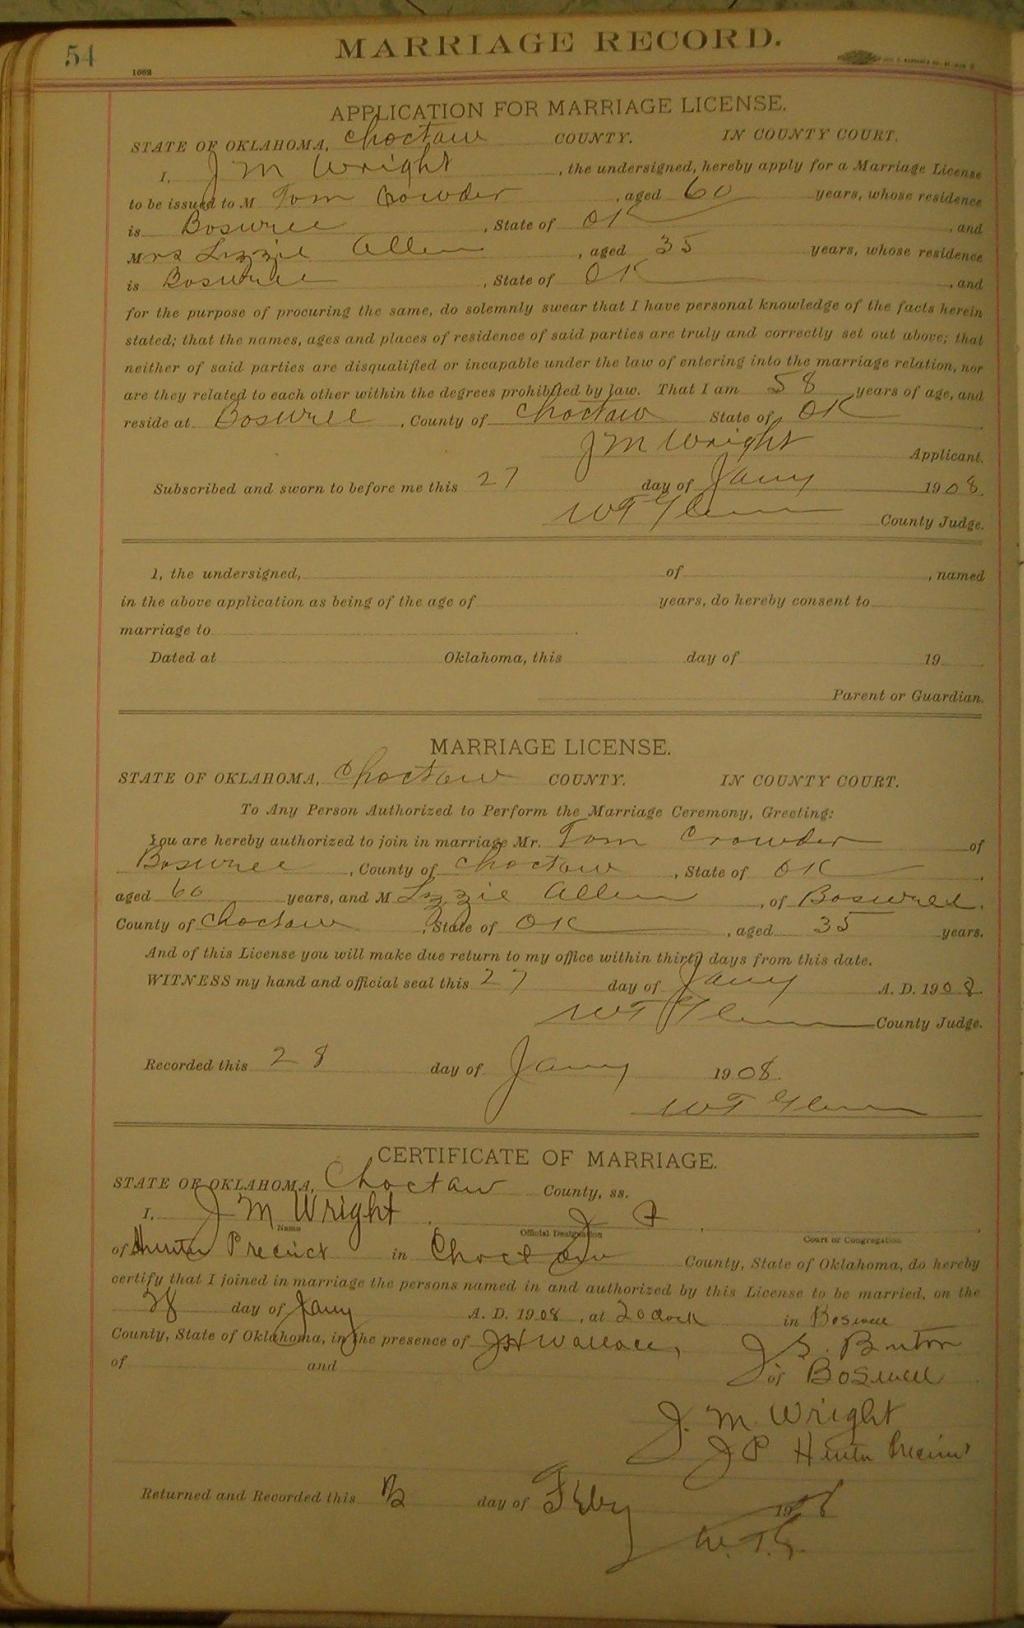 54
MARRIAGE RECORD.
1092
APPLICATION FOR MARRIAGE LICENSE.
STATE OF OKLAHOMA, Choctaw COUNTY. IN COUNTY COURT.
I, J M Wright, the undersigned, hereby apply for a Marriage License
to be issued to M Tom Crowder, aged 60 years, whose residence
is Boswell, State of OK, and
Mrs Lizzie Allen, aged 35 years, whose residence
is Boswell, State of OK, and
for the purpose of procuring the same, do solemnly swear that I have personal knowledge of the facts herein
stated; that the names, ages and places of residence of said parties are truly and correctly set out above; that
neither of said parties are disqualified or incapable under the law of entering into the marriage relation, nor
are they related to each other within the degrees prohibited by law. That I am 58 years of age, and
reside at Boswell, County of Choctaw State of OK
J M Wright Applicant.
Subscribed and sworn to before me this 27 day of Jany 1908.
W T Glenn County Judge.
I, the undersigned, of , named
in the above application as being of the age of years, do hereby consent to
marriage to
Dated at Oklahoma, this day of 19
Parent or Guardian.
MARRIAGE LICENSE.
STATE OF OKLAHOMA, Choctaw COUNTY. IN COUNTY COURT.
To Any Person Authorized to Perform the Marriage Ceremony, Greeting:
You are hereby authorized to join in marriage Mr. Tom Crowder of
Boswell, County of Choctaw, State of OK,
aged 60 years, and M Lizzie Allen, of Boswell,
County of Choctaw, State of OK, aged 35 years.
And of this License you will make due return to my office within thirty days from this date.
WITNESS my hand and official seal this 27 day of Jany A. D. 1908.
W T Glenn County Judge.
Recorded this 28 day of Jany 1908.
W T Glenn
CERTIFICATE OF MARRIAGE.
STATE OF OKLAHOMA, Choctaw County, ss.
I, J M Wright, J P
Name Official Designation Court or Congregation
of Hunter Precinct in Choctaw County, State of Oklahoma, do hereby
certify that I joined in marriage the persons named in and authorized by this License to be married, on the
28 day of Jany A. D. 1908, at 2 o clock in Boswell
County, State of Oklahoma, in the presence of J H Wallace, J. S. Buton
of and of Boswell
J. M. Wright
J P Hunter Precinct
Returned and Recorded this day of Feby 1908
W. T. G.